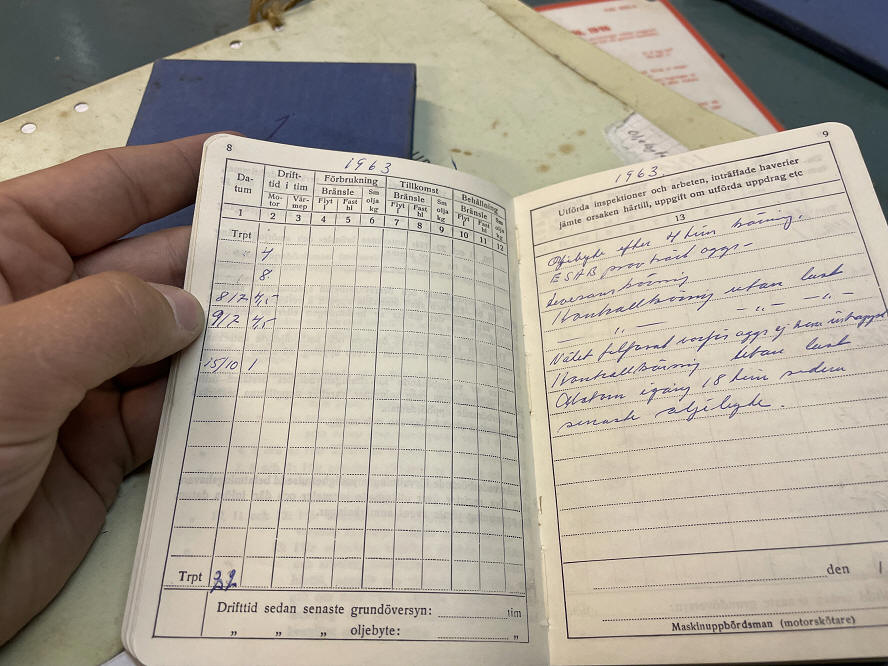 8
1963
Da-
tum
Drift-
tid i tim
Förbrukning
Tillkomst
Behållning
Mo-
tor
Vär-
mep
Bränsle
Flyt
l
Fast
hl
Sm
olja
kg
Bränsle
Flyt
l
Fast
hl
Sm
olja
kg
Bränsle
Flyt
l
Fast
hl
Sm
olja
kg
1 2 3 4 5 6 7 8 9 10 11 12
Trpt
4
8
8/7 4,5
9/7 4,5
15/10 1
Trpt
Drifttid sedan senaste grundöversyn: tim
„ „ „ oljebyte: „
9
1963.
Utförda inspektioner och arbeten, inträffade haverier
jämte orsaken härtill, uppgift om utförda uppdrag etc
13
Oljebyte efter 4 tim körning.
ESAB prov kört aggr-
Leveranskörning
Kontrollkörning utan last
— „ — — „ — — „ —
Nätet felfasat varför aggr ej kom
Kontrollkörning utan last
igång 18 tim sedan
senaste oljebyte.
den /
Maskinuppbördsman (motorskötare)